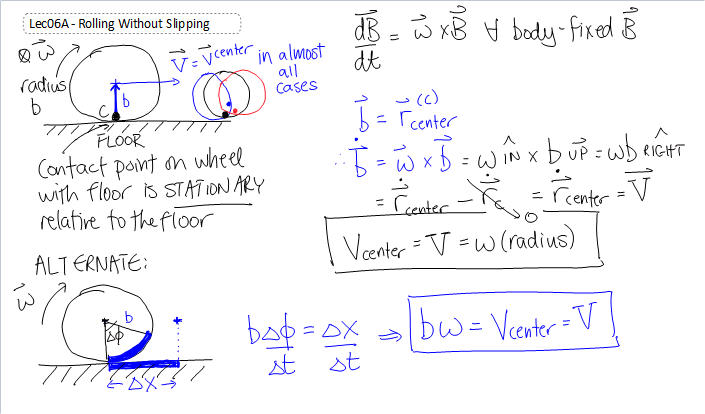 Lec06A - Rolling Without Slipping
⊗ ω⃗
radius
b
V⃗ = V⃗center in almost
all
cases
C b
FLOOR
Contact point on wheel
with floor IS STATIONARY
relative to the floor
ALTERNATE:
ω⃗
b
ΔΦ
← ΔX →
dB⃗/dt = ω⃗ × B⃗ ∀ body-fixed B⃗
b⃗ = r⃗center^(C)
∴ ḃ⃗ = ω⃗ × b⃗ = ω IN^ × b UP^ = ωb RIGHT^
= ṙ⃗center − ṙ⃗c = ṙ⃗center = V⃗
0
Vcenter = V = ω(radius)
bΔΦ/Δt = ΔX/Δt ⇒ bω = Vcenter = V